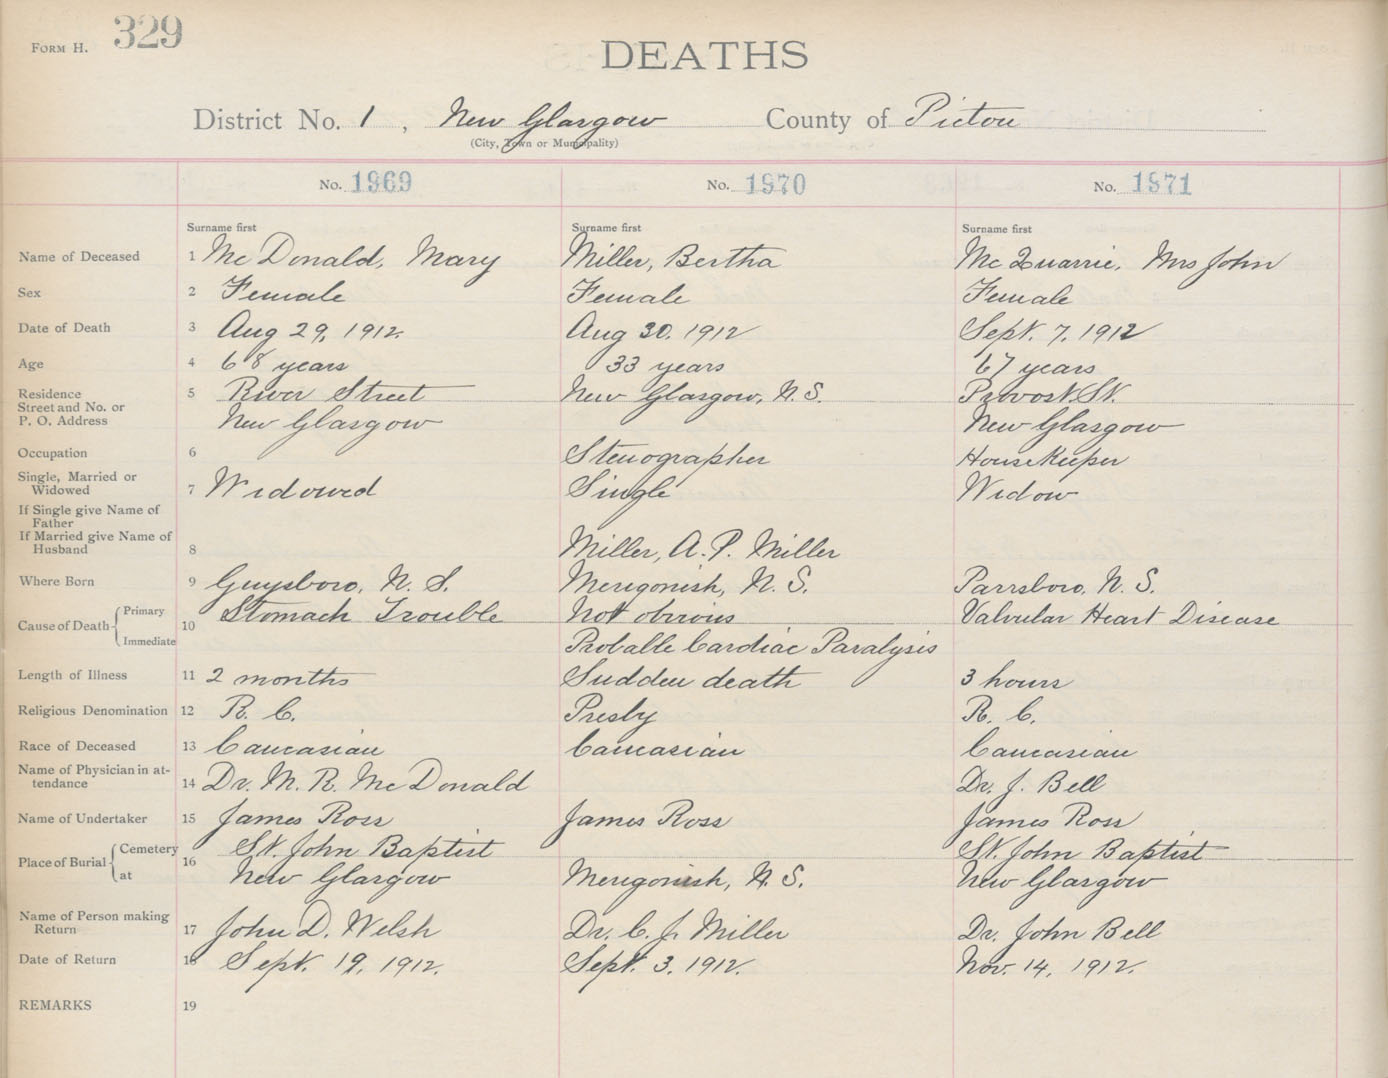 FORM H. 329
DEATHS
District No. 1, New Glasgow County of Pictou
(City, Town or Municipality)
No. 1969 No. 1970 No. 1971
Surname first Surname first Surname first
Name of Deceased 1 McDonald, Mary Miller, Bertha McQuarrie, Mrs John
Sex 2 Female Female Female
Date of Death 3 Aug 29, 1912. Aug 30, 1912 Sept. 7, 1912
Age 4 68 years 33 years 67 years
Residence 5 River Street New Glasgow, N.S. Provost St.
Street and No. or
P. O. Address New Glasgow New Glasgow
Occupation 6 Stenographer HouseKeeper
Single, Married or
Widowed 7 Widowed Single Widow
If Single give Name of
Father
If Married give Name of
Husband 8 Miller, A. P. Miller
Where Born 9 Guysboro, N. S. Merigonish, N. S. Parrsboro, N. S.
Cause of Death Primary 10 Stomach Trouble Not obvious Valvular Heart Disease
Immediate Probable Cardiac Paralysis
Length of Illness 11 2 months Sudden death 3 hours
Religious Denomination 12 R. C. Presby R. C.
Race of Deceased 13 Caucasian Caucasian Caucasian
Name of Physician in at-
tendance 14 Dr. M. R. McDonald Dr. J. Bell
Name of Undertaker 15 James Ross James Ross James Ross
Place of Burial Cemetery 16 St. John Baptist St. John Baptist
at New Glasgow Merigonish, N. S. New Glasgow
Name of Person making
Return 17 John D. Welsh Dr. C. J. Miller Dr. John Bell
Date of Return 18 Sept. 19, 1912. Sept. 3, 1912. Nov. 14, 1912.
REMARKS 19